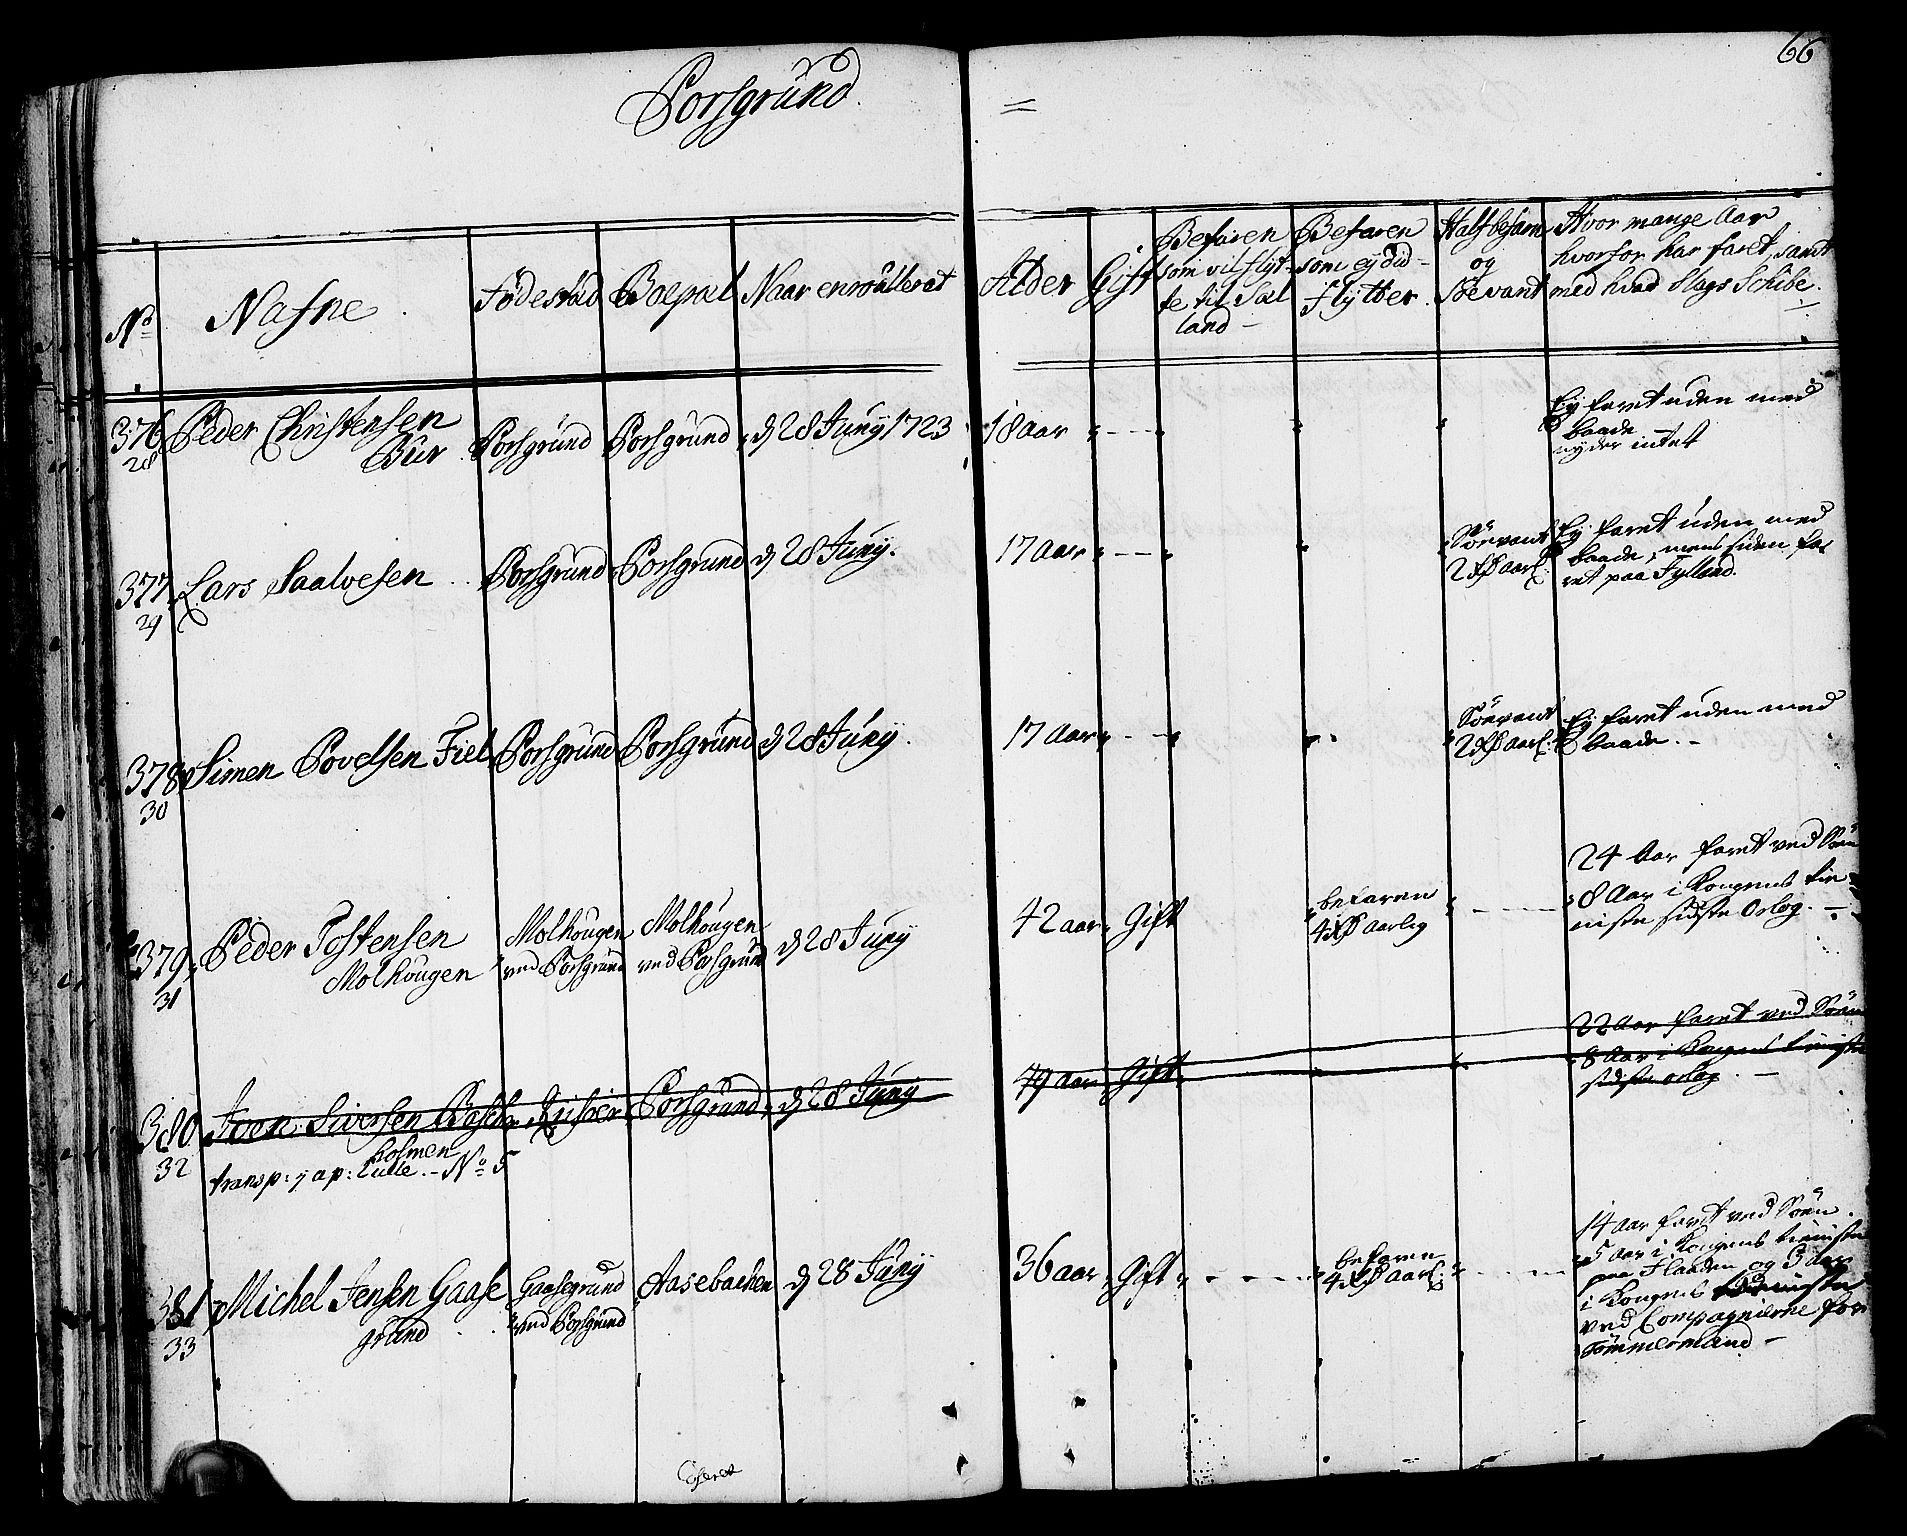 Porsgrund
=
66
No
Nafne
Födestæd
Boepæl
Naar enroulleret
Alder
Gift
Befaren
som vil flyt-
te til Sæl
land -
Befaren
som ey vil
Flÿtter.
Halfbefarn
og
Söevant
Hvor mange Aar
hvorfor har faret, samt
med hvad Slags Schibe.
376
28
Peder Christensen
Bur
Porsgrund
Porsgrund
d 28 Junÿ 1723
18 aar
Eÿ faret uden med
baade
nyder intet
377
29
Lars Saalvesen
Porsgrund
Porsgrund
d 28 Junÿ.
17 Aar
Söevant
2 Rd aarl:
Eÿ faret uden med
baade, mens siden fa-
ret paa Jylland.
378
30
Simen Povelsen Fiel
Porsgrund
Porsgrund
d 28 Junÿ.
17 Aar
Söevant
2 Rd aarl:
Eÿ faret uden med
baade. -
379
31
Peder Tostensen
Molhougen
Molhougen
ved Porsgrund
Molhougen
ved Porsgrund
d 28 Junÿ
42 aar
Gift
befaren
4 Rd aarlig
24 Aar faret ved Söen
8 Aar i Kongens tie-
niste sidste Orlog. -
380
32
Iven Siversen Bosch
holmen
Porsgrund
d 28 Junÿ
49 aar
Gift
22 Aar faret ved Söen
8 Aar i Kongens tieniste
sidste orlog. -
transp: j ap: Rulle. - No 5
381
33
Michel Jensen Gaase
grund
Gaasegrund
ved Porsgrund
Aasebachen
d 28 Junÿ
36 aar
Gift
befaren
4 Rd aarl:
14 aar faret ved Söen.
5 aar i Kongens tieniste
paa Flaaden og 3 aar
i Kongens tieniste
ved Compagnierne for
Tömmermand -